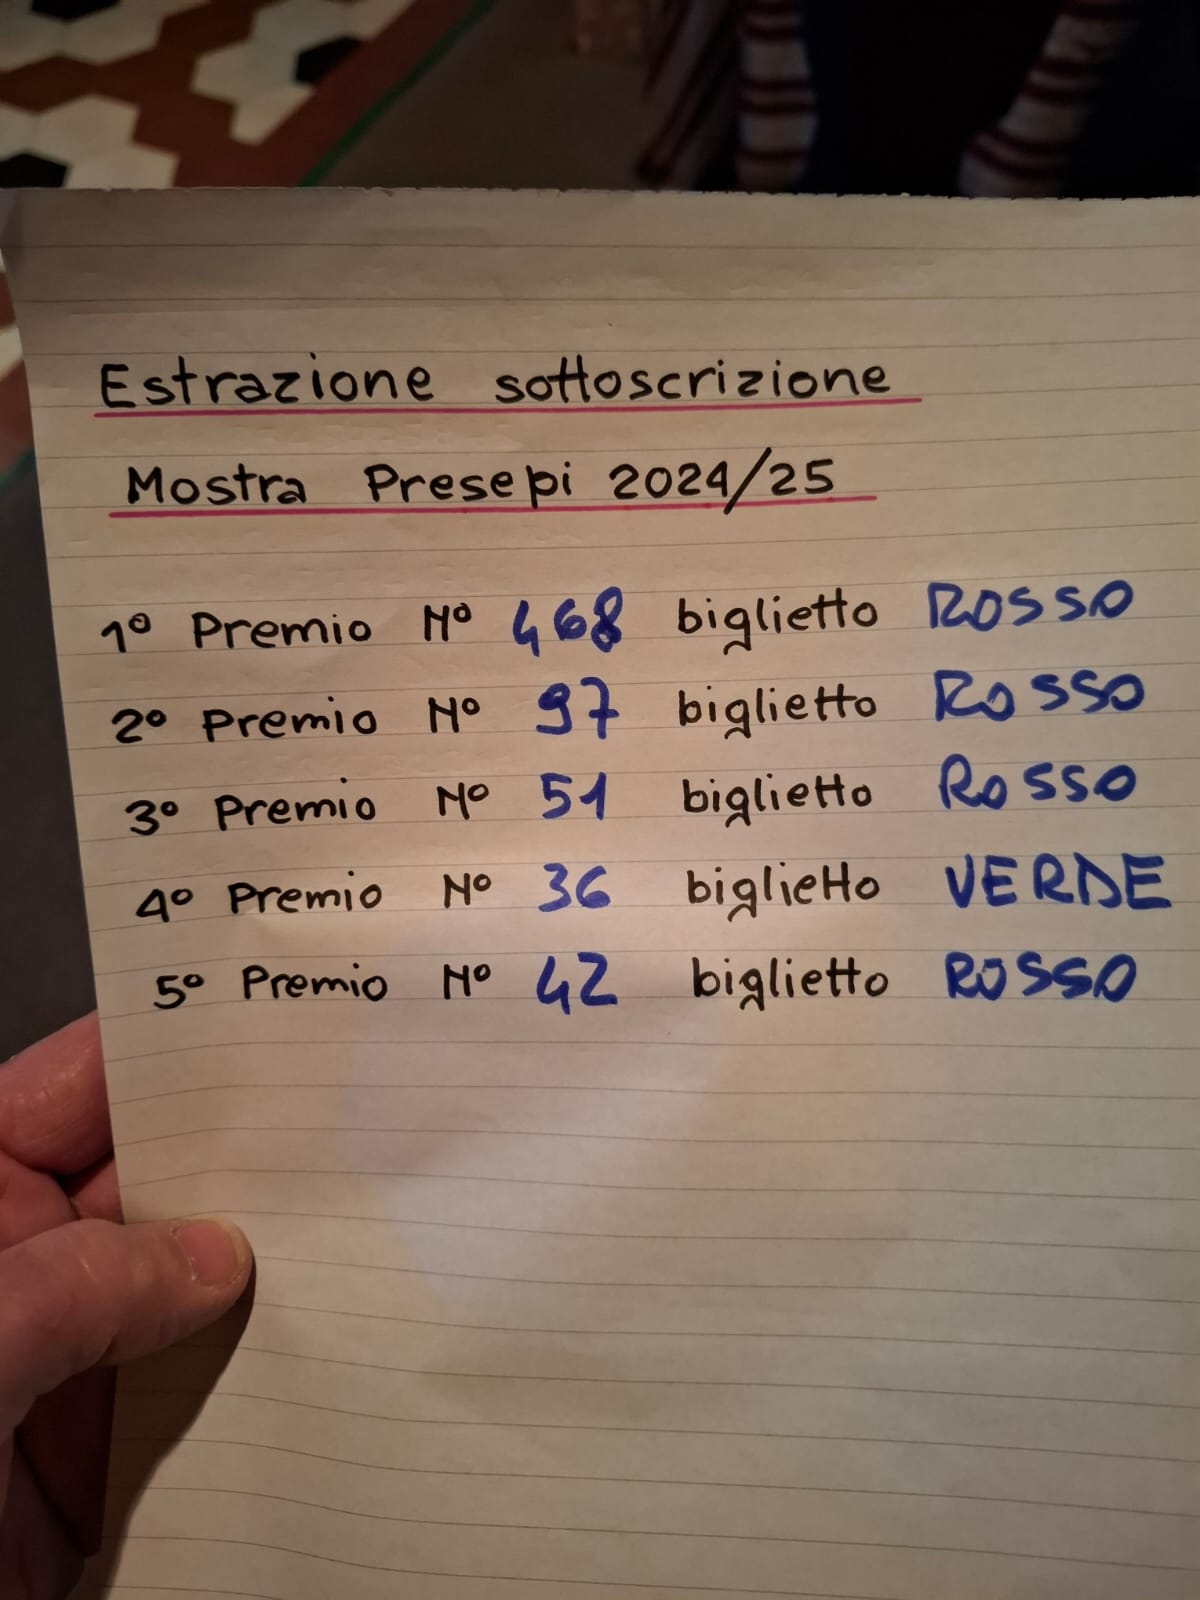 Estrazione sottoscrizione
Mostra Presepi 2024/25
1º Premio Nº 468 biglietto ROSSO
2º Premio Nº 97 biglietto ROSSO
3º Premio Nº 51 biglietto ROSSO
4º Premio Nº 36 biglietto VERDE
5º Premio Nº 42 biglietto ROSSO